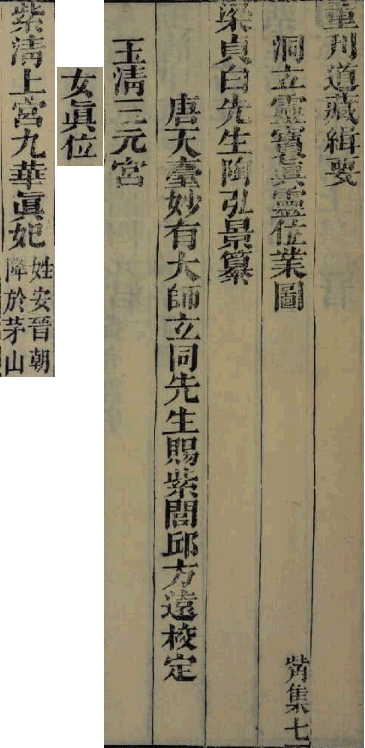 重刊道藏輯要
觜集七
洞玄靈寶真靈位業圖
梁貞白先生陶弘景纂
唐天臺妙有大師玄同先生賜紫閭邱方遠校定
玉清三元宮
女眞位
紫清上宮九華眞妃
姓安晉朝
降於茅山